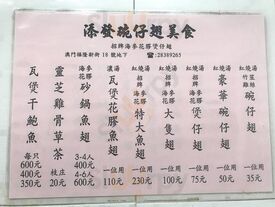 添發碗仔翅美食
招牌海參花膠煲仔翅
澳門福隆新街18號地下 ☎:28389265
瓦煲干鮑魚 每只 600元 400元 350元
靈芝雞骨草茶 枝庄 20元
海參花膠 砂鍋魚翅 3-4人 400元 4-6人 600元
濃湯 瓦煲花膠魚翅 一位用 110元
海參花膠 特大魚翅 一位用 230元
紅燒 大隻翅 一位用 100元
紅燒湯 海參花膠 煲仔翅 75元
紅燒湯 豪華碗翅 50元
紅燒湯 竹笙雞絲 碗仔翅 35元